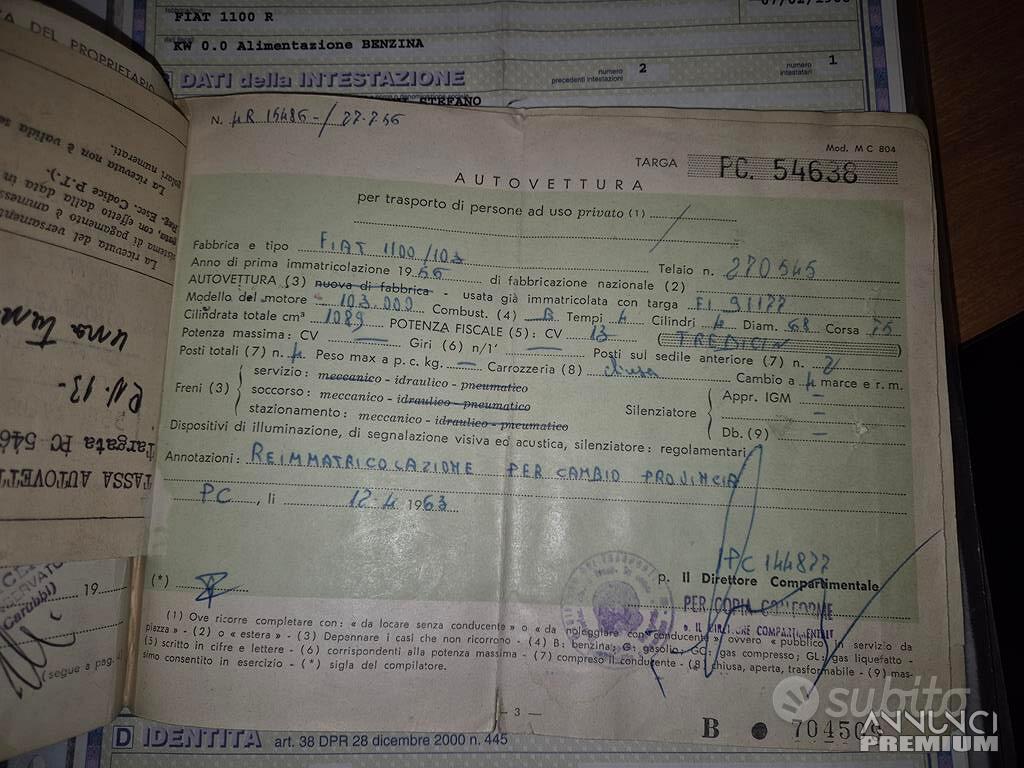 FIAT 1100 R
KW 0.0 Alimentazione BENZINA
DATI della INTESTAZIONE
numero precedenti intestazioni 2
numero intestatari 1
STEFANO
DEL PROPRIETARIO
N. MR 15486-/27.7.56
Mod. M C 804
TARGA PC. 54638
AUTOVETTURA
per trasporto di persone ad uso privato (1)
Fabbrica e tipo FIAT 1100/103 Telaio n. 270545
Anno di prima immatricolazione 1956 di fabbricazione nazionale (2)
AUTOVETTURA (3) nuova di fabbrica - usata già immatricolata con targa FI 91177
Modello del motore 103.000 Combust. (4) B Tempi 4 Cilindri 4 Diam. 68 Corsa 75
Cilindrata totale cm³ 1089 POTENZA FISCALE (5): CV 13 (TREDICI)
Potenza massima: CV — Giri (6) n/1' — Posti sul sedile anteriore (7) n. 2
Posti totali (7) n. 4 Peso max a p. c. kg. — Carrozzeria (8) chiusa Cambio a 4 marce e r. m.
Freni (3)
servizio: meccanico - idraulico - pneumatico
soccorso: meccanico - idraulico - pneumatico
stazionamento: meccanico - idraulico - pneumatico
Silenziatore
Appr. IGM —
Db. (9) —
Dispositivi di illuminazione, di segnalazione visiva ed acustica, silenziatore: regolamentari
Annotazioni: REIMMATRICOLAZIONE PER CAMBIO PROVINCIA
PC, li 12.4 1963
PC 144877
p. Il Direttore Compartimentale
PER COPIA CONFORME
p. IL DIRETTORE COMPARTIMENTALE
(*)
(1) Ove ricorre completare con: « da locare senza conducente » o « da noleggiare con conducente » ovvero « pubblico in servizio da
piazza » - (2) o « estera » - (3) Depennare i casi che non ricorrono - (4) B: benzina; G: gasolio; GC: gas compresso; GL: gas liquefatto -
(5) scritto in cifre e lettere - (6) corrispondenti alla potenza massima - (7) compreso il conducente - (8) chiusa, aperta, trasformabile - (9) mas-
simo consentito in esercizio - (*) sigla del compilatore.
— 3 —
B ● 704506
La ricevuta non è valida se
tolari numerati.
Reg. Esec. Codice P.T.).
La ricevuta del versamento
sistema di pagamento è ammesso
Targata PC 546
TASSA AUTOVETT
19
Carubbi)
(segue a pag.
D IDENTITA art. 38 DPR 28 dicembre 2000 n. 445
subito
ANNUNCI
PREMIUM